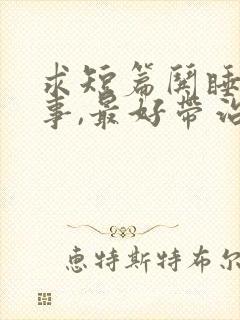 求短篇闺睡
事,最好带治
惠特斯特布尔